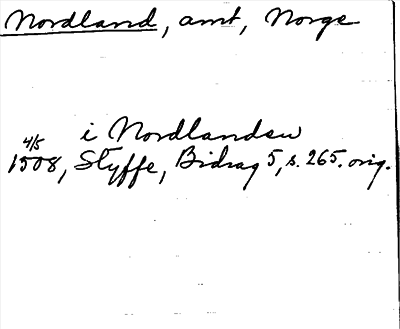 Nordland, amt, Norge
i Nordlanden
4/5
1508, Styffe, Bidrag 5, s. 265. orig.